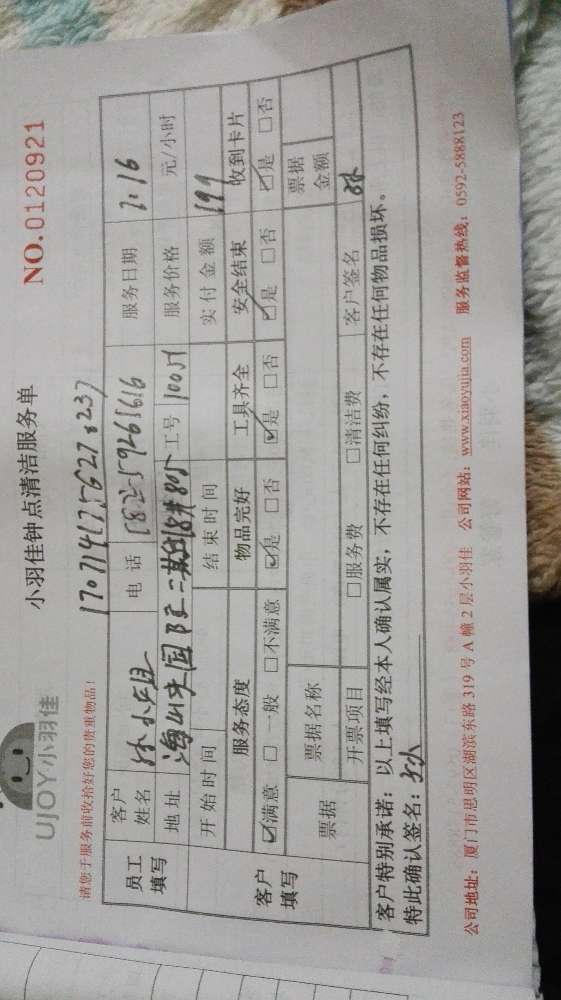 UJOY小羽佳
小羽佳钟点清洁服务单
NO.0120921
请您于服务前收拾好您的贵重物品!
员工填写
客户姓名 林小姐 电话 服务日期 7.16
地址 工号 服务价格 元/小时
开始时间 结束时间 实付金额 199
客户填写
服务态度 物品完好 工具齐全 安全结束 收到卡片
☑满意 □一般 □不满意 ☑是 □否 ☑是 □否 ☑是 □否 ☑是 □否
票据 票据名称 票据金额
开票项目 □服务费 □清洁费 客户签名
客户特别承诺:以上填写经本人确认属实,不存在任何纠纷,不存在任何物品损坏。
特此确认签名:
公司地址:厦门市思明区湖滨东路 319 号 A 幢 2 层小羽佳 公司网站:www.xiaoyujia.com 服务监督热线:0592-5888123